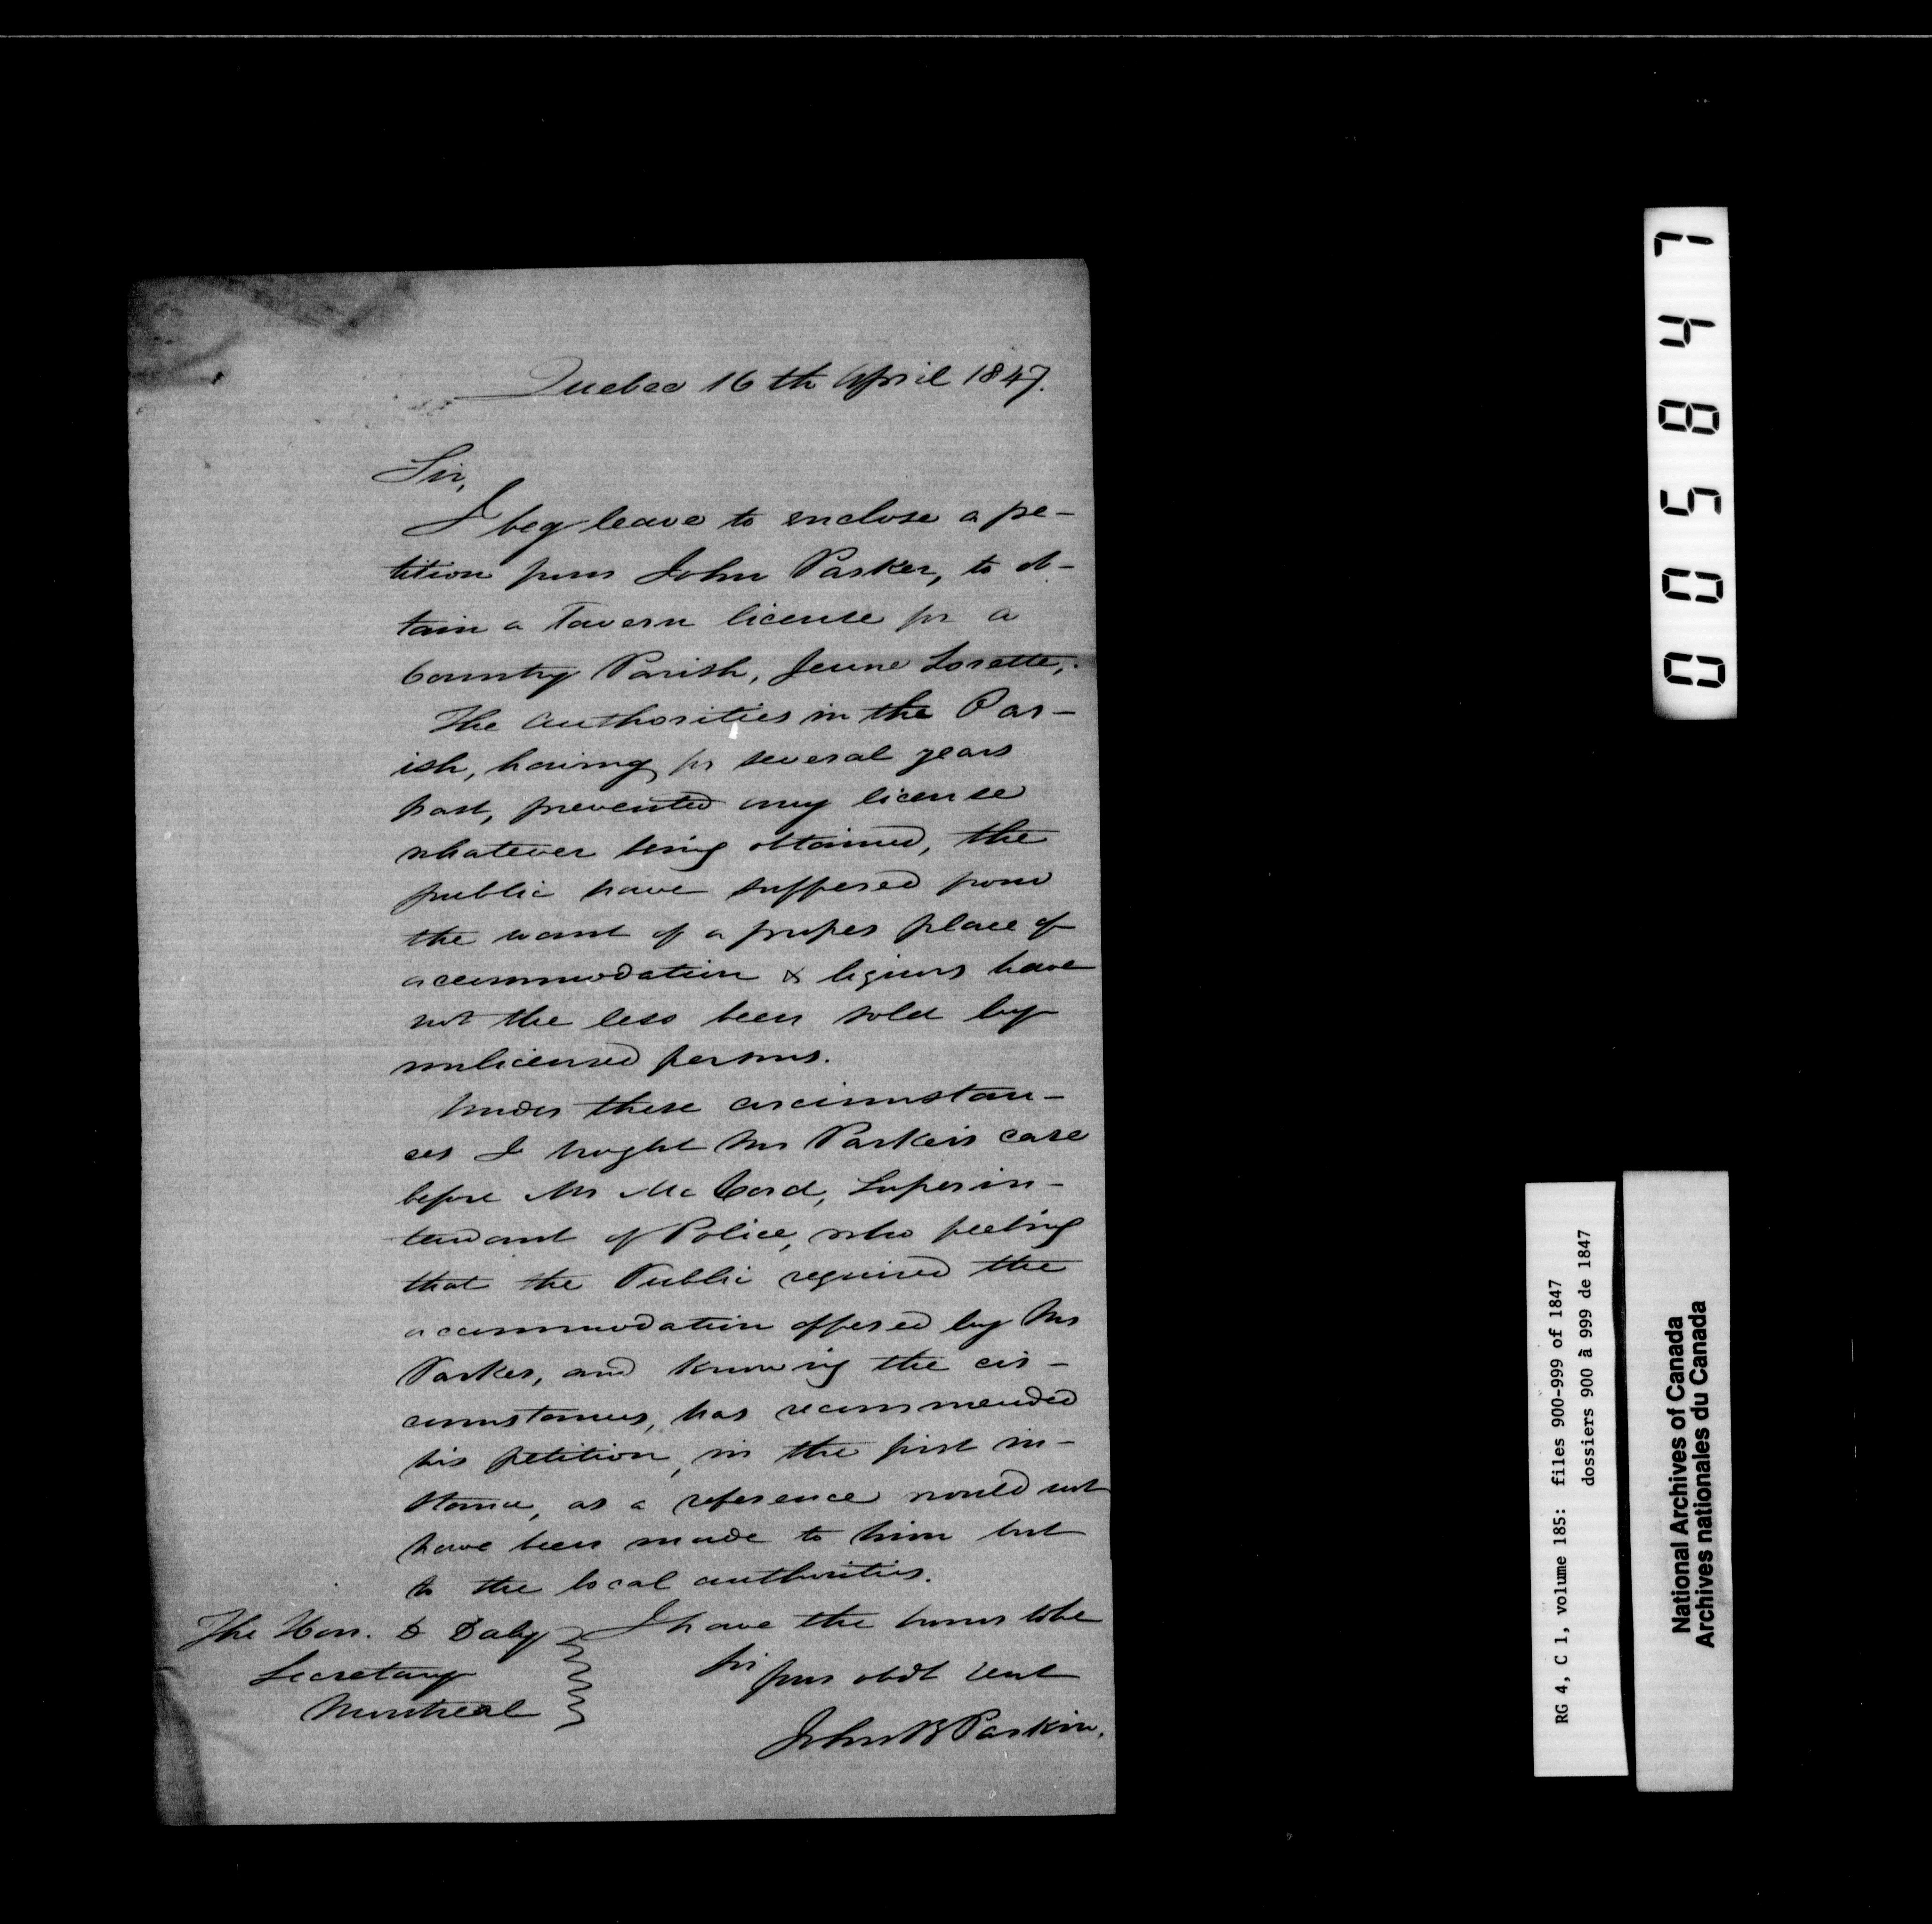 Quebec 16th April 1847.
Sir,
I beg leave to enclose a pe-
tition from John Parker, to ob-
tain a Tavern license for a
Country Parish, Jeune Lorette,.
The authorities in the Par-
ish, having for several years
past, prevented any license
whatever being obtained, the
public have suffered from
the want of a proper place of
accommodation & liquors have
not the less been sold by
unlicensed persons.
Under these circumstan-
ces I brought Mr Parker's case
before Mr McCord, Superin-
tendant of Police, who feeling
that the Public required the
accommodation offered by Mr
Parker, and knowing the cir-
cumstances, has recommended
his petition, in the first in-
stance, as a reference would not
have been made to him but
to the local authorities.
I have the honor to be
Sir
your obdt Servt
John B Parkin.
The Hon. D Daly
Secretary
Montreal
005847
RG 4, C 1, volume 185: files 900-999 of 1847
dossiers 900 à 999 de 1847
National Archives of Canada
Archives nationales du Canada